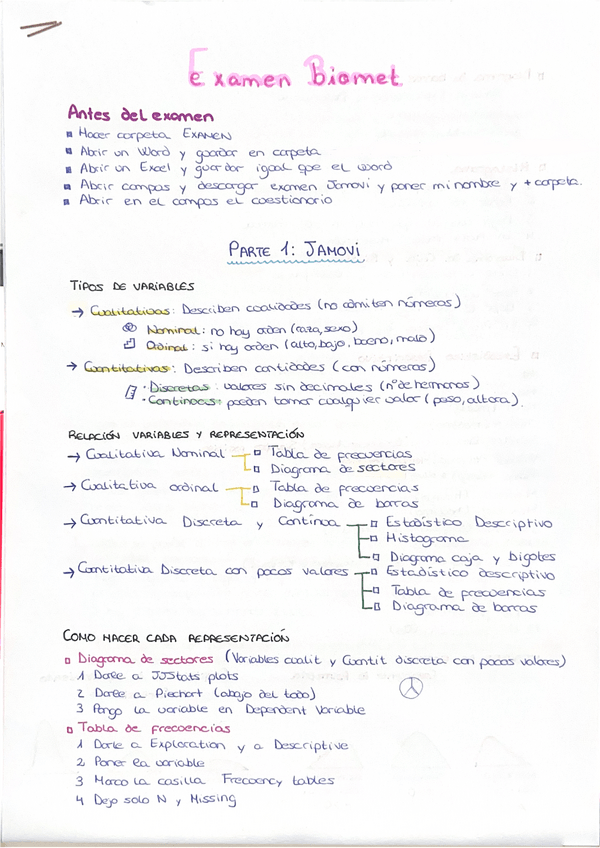 Examen Biomet
Antes del examen
Hacer carpeta EXAMEN
Abrir un Word y guardar en carpeta
Abrir un Excel y guardar igual que el Word
Abrir campus y descargar examen Jamovi y poner mi nombre y + carpeta.
Abrir en el campus el cuestionario
PARTE 1: JAMOVI
TIPOS DE VARIABLES
→ Cualitativas: Describen cualidades (no admiten números)
Nominal: no hay orden (raza, sexo)
Ordinal: si hay orden (alto, bajo, bueno, malo)
→ Cuantitativas: Describen cantidades (con números)
· Discretas: valores sin decimales (nº de hermanos)
· Continuas: pueden tomar cualquier valor (peso, altura).
RELACIÓN VARIABLES Y REPRESENTACIÓN
→ Cualitativa Nominal Tabla de frecuencias
Diagrama de sectores
→ Cualitativa ordinal Tabla de frecuencias
Diagrama de barras
→ Cuantitativa Discreta y Continua Estadístico Descriptivo
Histograma
Diagrama caja y Bigotes
→ Cuantitativa Discreta con pocos valores Estadístico descriptivo
Tabla de frecuencias
Diagrama de barras
COMO HACER CADA REPRESENTACIÓN
Diagrama de sectores (Variables cualit y Cuantit discreta con pocos valores)
1 Darle a JJStats plots
2 Darle a Piechart (abajo del todo)
3 Pongo la variable en Dependent Variable
Tabla de frecuencias
1 Darle a Exploration y a Descriptive
2 Poner la variable
3 Marco la casilla Frecuency tables
4 Dejo solo N y Missing